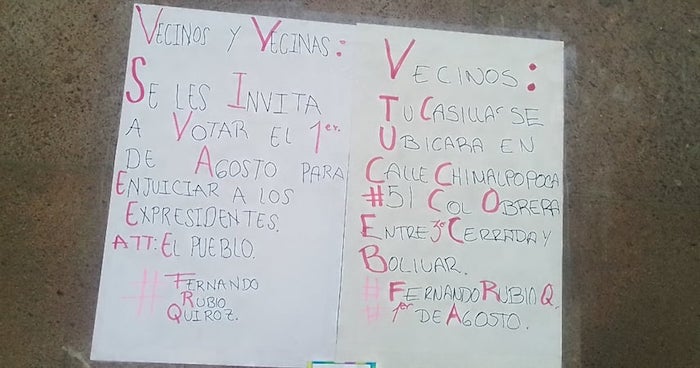 VECINOS Y VECINAS:
SE LES INVITA
A VOTAR EL 1er.
DE AGOSTO PARA
ENJUICIAR A LOS
EXPRESIDENTES.
ATT: EL PUEBLO.
# FERNANDO
RUBIO
QUIROZ.
VECINOS:
TU CASILLA SE
UBICARA EN
CALLE CHIMALPOPOCA
#51 COL OBRERA
ENTRE 3ra CERRADA Y
BOLIVAR.
# FERNANDO RUBIO Q.
# 1er DE AGOSTO.